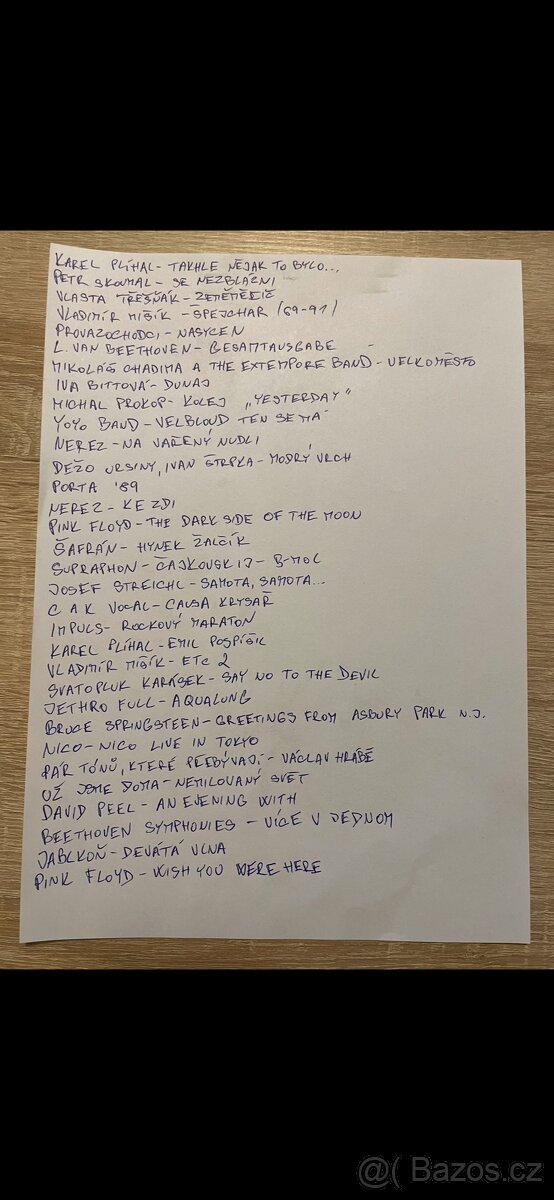 KAREL PLÍHAL- TAKHLE NĚJAK TO BYLO...
PETR SKOUMAL - SE NEZBLÁZNI
VLASTA TŘEŠŇÁK - ZEMĚMĚŘIČ
VLADIMÍR MIŠÍK - ŠPEJCHAR /69-91/
PROVAZOCHODCI - NASYCEN
L. VAN BEETHOVEN - GESAMTAUSGABE
MIKOLÁŠ CHADIMA A THE EXTEMPORE BAND - VELKOMĚSTO
IVA BITTOVÁ - DUNAJ
MICHAL PROKOP - KOLEJ „YESTERDAY"
YOYO BAND - VELBLOUD TEN SE MÁ
NEREZ - NA VAŘENÝ NUDLI
DEŽO URSINY, IVAN ŠTRPKA - MODRÝ VRCH
PORTA '89
NEREZ - KE ZDI
PINK FLOYD - THE DARK SIDE OF THE MOON
ŠAFRÁN - HYNEK ŽALČÍK
SUPRAPHON - ČAJKOVSKIJ - B-MOL
JOSEF STREICHL - SAMOTA, SAMOTA...
C A K VOCAL - CAUSA KRYSAŘ
IMPULS - ROCKOVÝ MARATON
KAREL PLÍHAL - EMIL POSPÍŠIL
VLADIMÍR MIŠÍK - ETC 2
SVATOPLUK KARÁSEK - SAY NO TO THE DEVIL
JETHRO FULL - AQUALUNG
BRUCE SPRINGSTEEN - GREETINGS FROM ASBURY PARK N.J.
NICO - NICO LIVE IN TOKYO
PÁR TÓNŮ, KTERÉ PŘEBÝVAJÍ - VÁCLAV HRABĚ
UŽ JSME DOMA - NEMILOVANÝ SVĚT
DAVID PEEL - AN EVENING WITH
BEETHOVEN SYMPHONIES - VÍCE V JEDNOM
JABLKOŇ - DEVÁTÁ VLNA
PINK FLOYD - WISH YOU WERE HERE
@( Bazos.cz